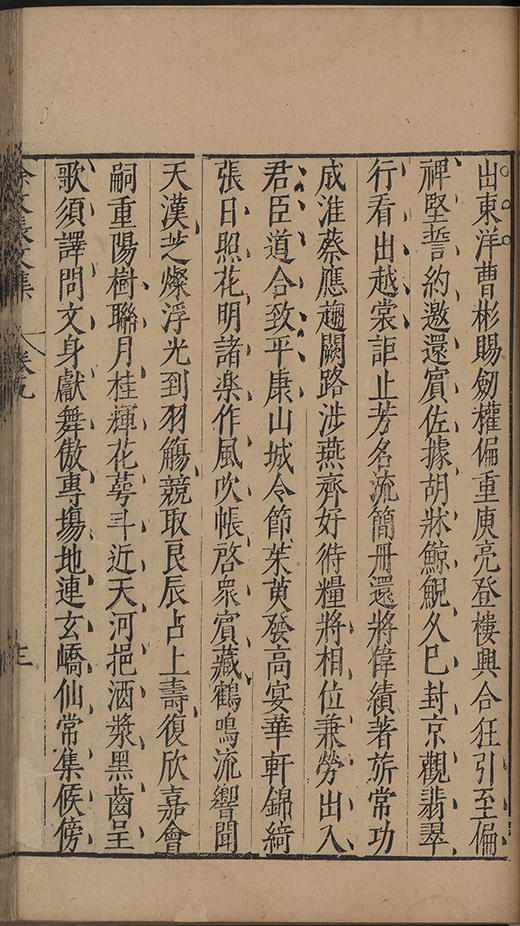 出東洋曹彬賜劒權偏重庾亮登樓興合狂引至偏
裨堅誓約邀還賓佐據胡牀鯨鯢久巳封京觀翡翠
行看出越裳詎止芳名流簡冊還將偉績著旂常功
成淮蔡應趨闕路涉燕齊好待糧將相位兼勞出入
君臣道合致平康山城令節茱萸發高宴華軒錦綺
張日照花明諸楽作風吹帳啓衆賓藏鶴鳴流響聞
天漢芝燦浮光到羽觴競取艮辰占上壽復欣嘉會
嗣重陽樹聯月桂輝花萼斗近天河挹酒漿黑齒呈
歌須譯問文身獻舞傲專塲地連玄嶠仙常集候傍
卷九